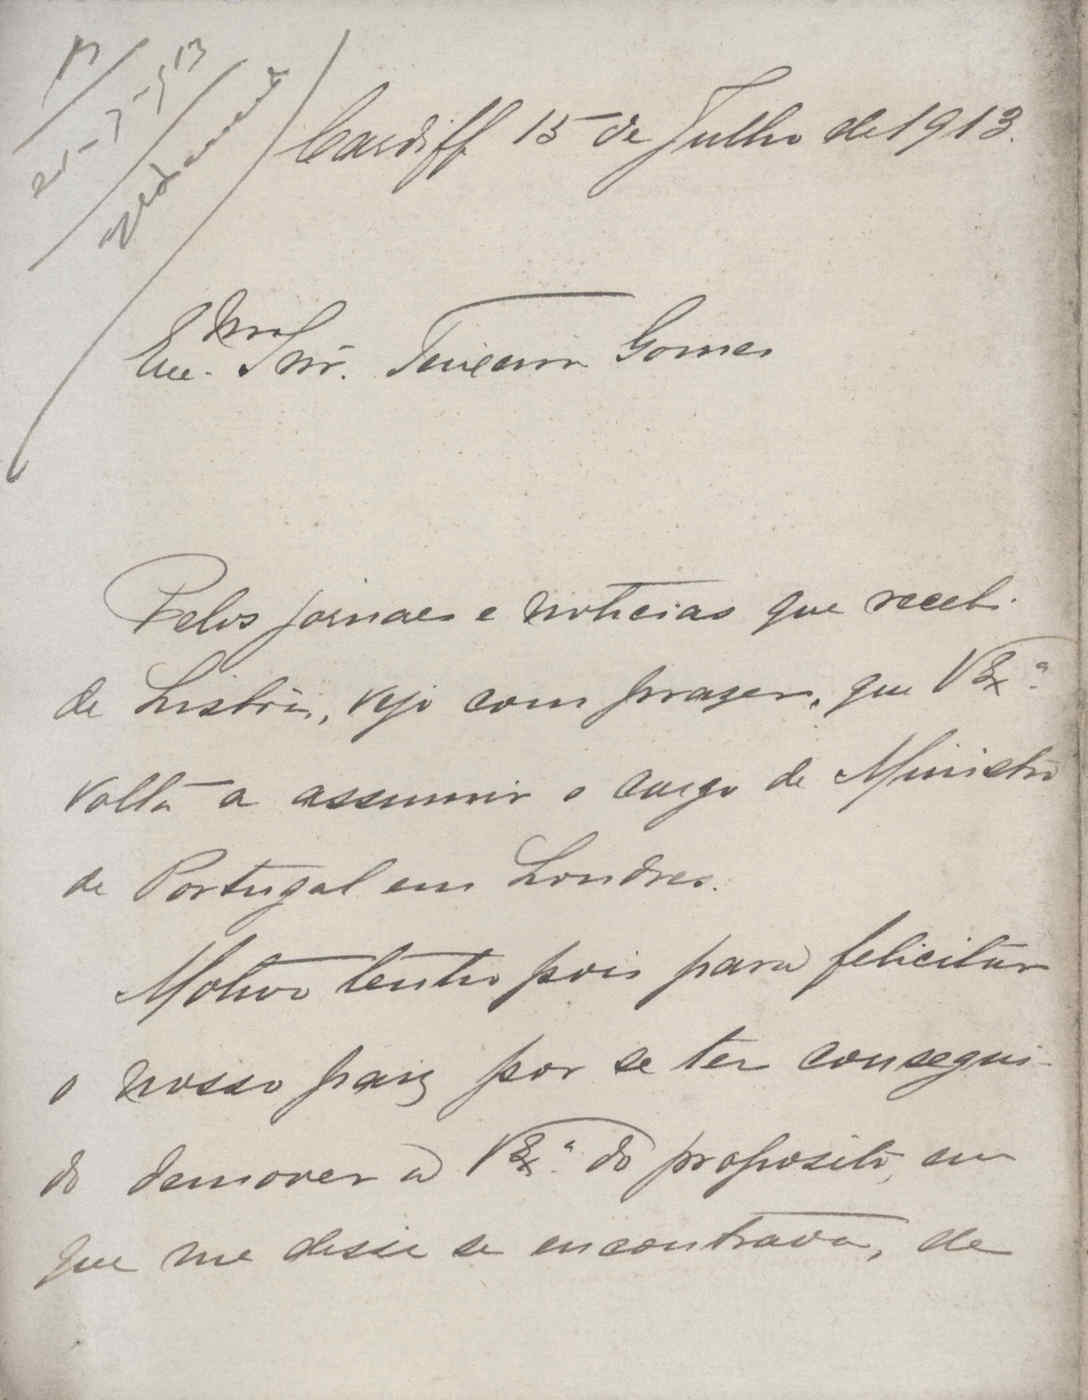 R
21-7-913
Cardiff 15 de Julho de 1913.
Exmo. Snr. Teixeira Gomes
Pelos jornaes e noticias que recebi
de Lisbôa, vejo com prazer, que V Exª.
volta a assumir o cargo de Ministro
de Portugal em Londres.
Motivo tenho pois para felicitar
o nosso paiz por se ter consegui-
do demover a V Exª. do proposito, em
que me disse se encontrava, de